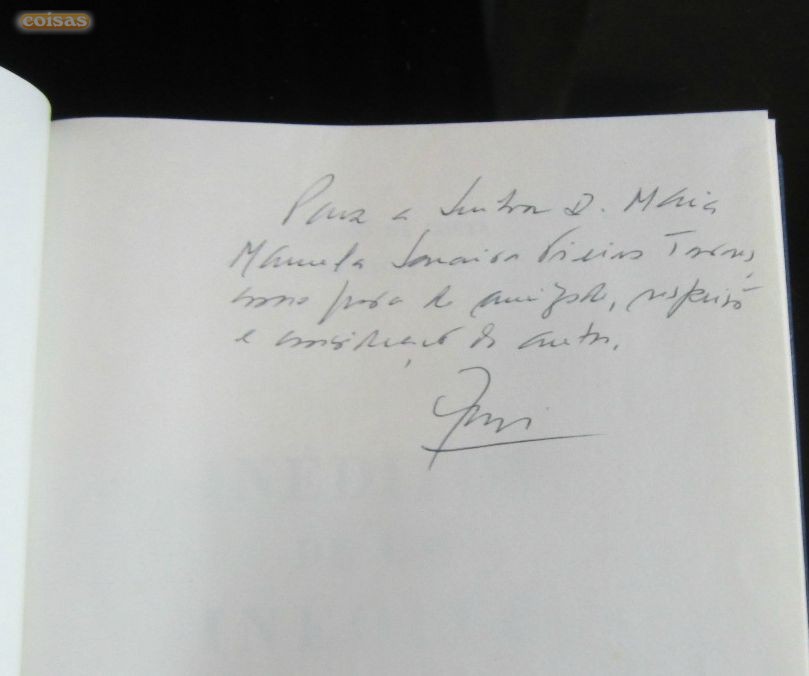 coisas
Para a Senhora D. Maria
Manuela Vieira Tavares,
como prova de amizade,
e consideração do autor.